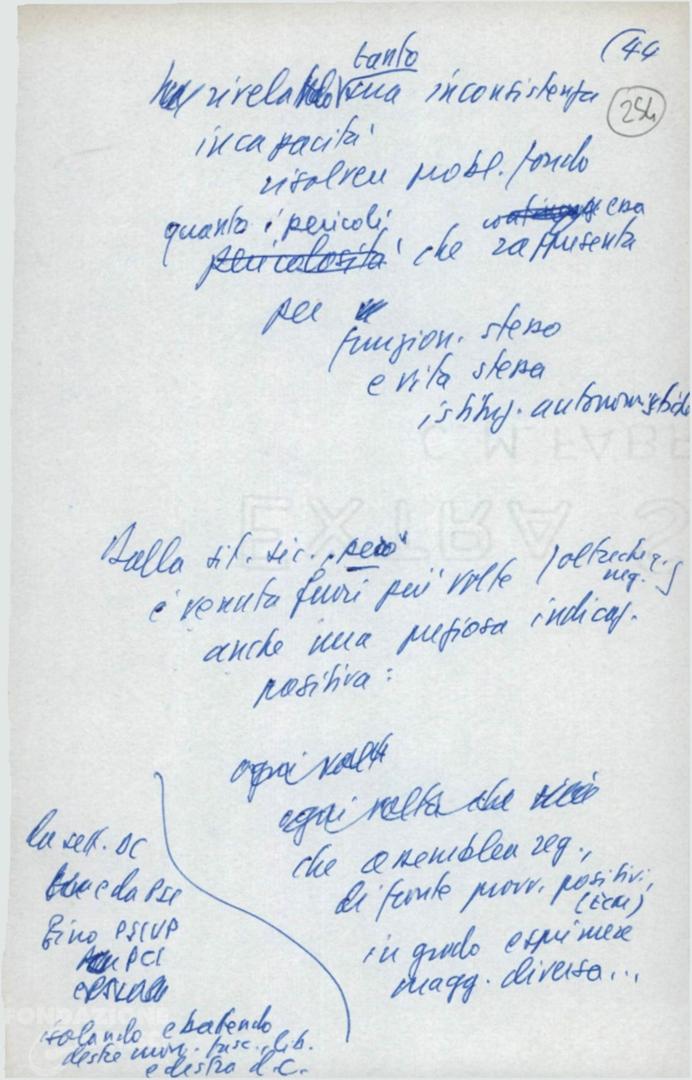 (44
254
tanto
ha rivelato sua inconsistenza
incapacità
risolvere probl. fondo
quanto i pericoli essa
pericolosità che rappresenta
per
funzion. stesso
e vita stessa
istituz. autonomistiche
Dalla sit. sic. "però"
è venuta fuori più volte (oltreché q.
neg.)
anche una preziosa indicaz.
positiva:
ogni volta
ogni volta che
che assemblea reg.,
di fronte provv. positivi,
in grado esprimere
magg. diversa...
da sett. DC
e da PSI
fino PSIUP
PCI
isolando e battendo
destre mon. fasc. lib.
e destra d.C.
EXTRA
C. M. FABR
FONDAZIONE